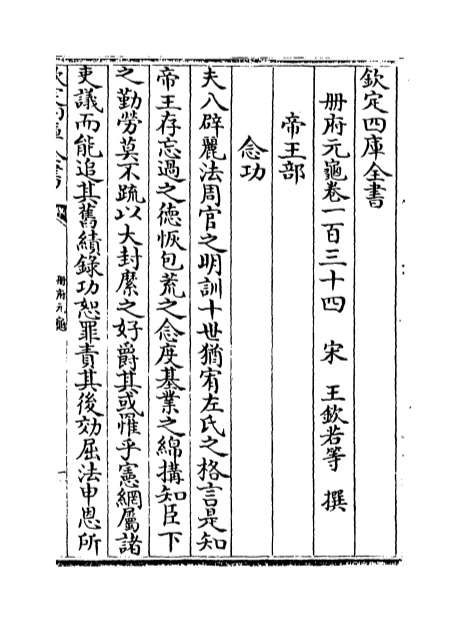 欽定四庫全書
冊府元龜卷一百三十四　宋　王欽若等　撰
帝王部
念功
夫八辟麗法周官之明訓十世猶宥左氏之格言是知
帝王存忘過之德恢包荒之念度基業之綿構知臣下
之勤勞莫不疏以大封縻之好爵其或懼乎憲網屬諸
吏議而能追其舊績錄功恕罪責其後効屈法申恩所
冊府元龜